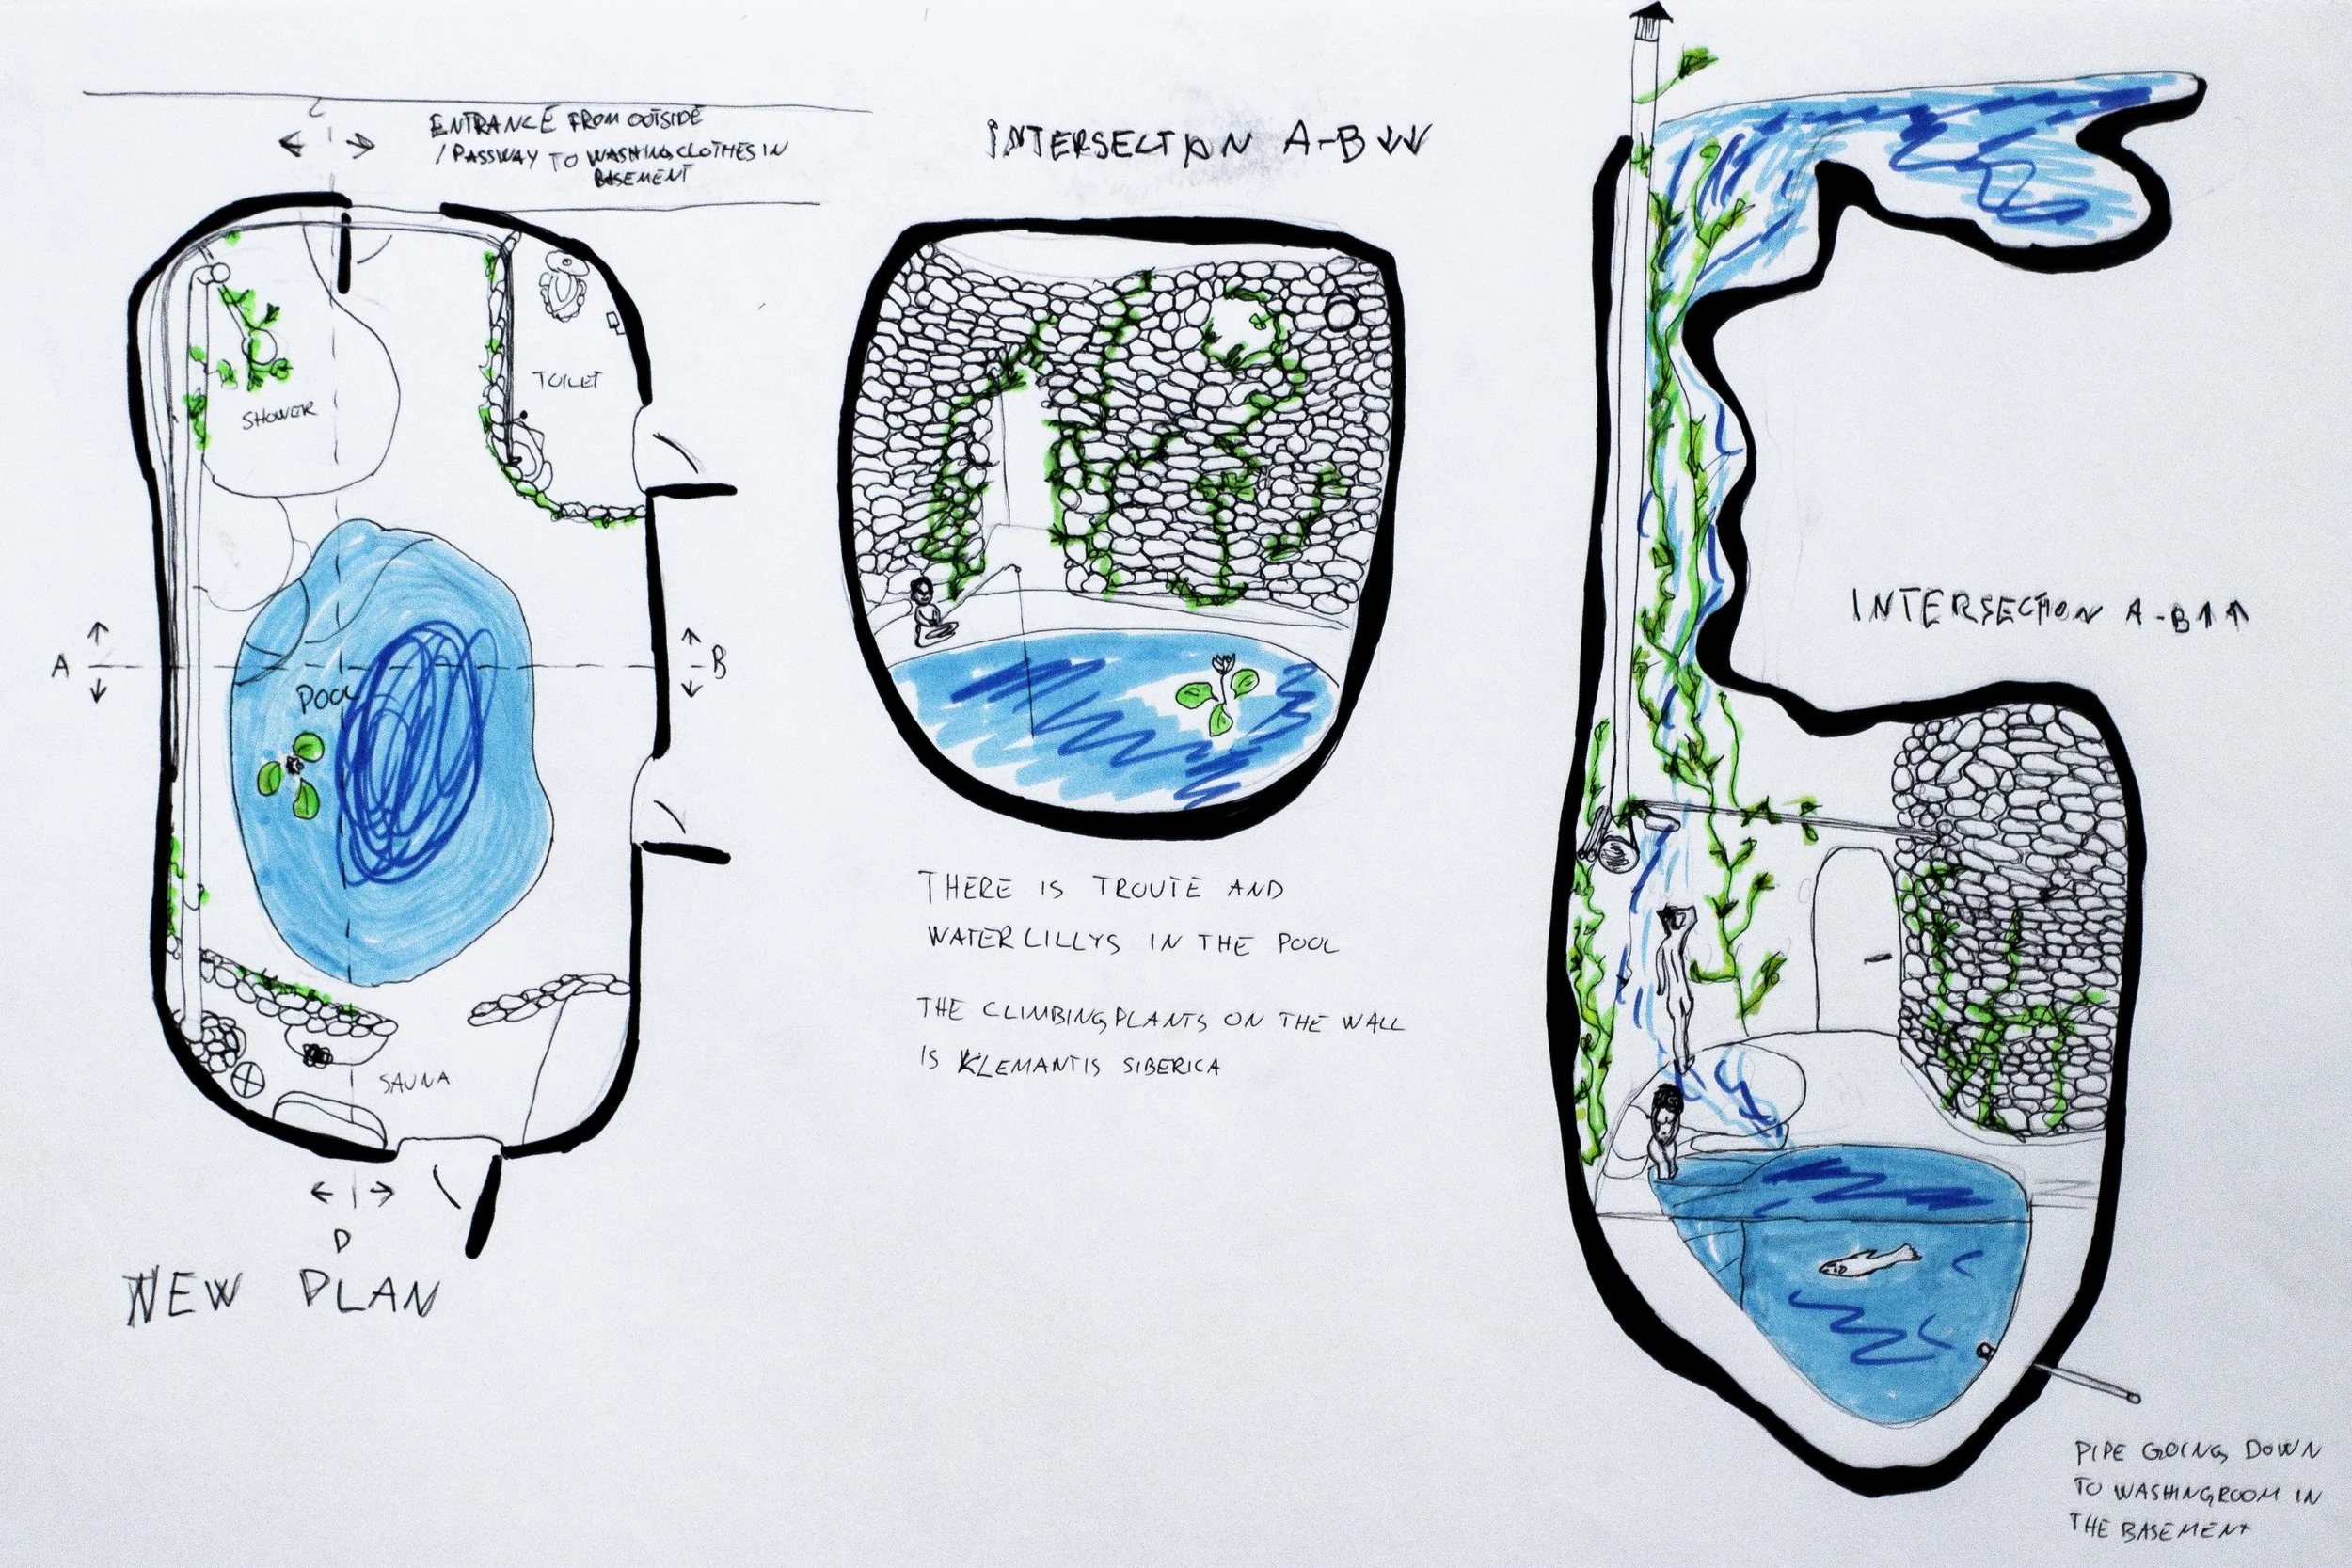 C
ENTRANCE FROM OUTSIDE
/PASSWAY TO WASHING CLOTHES IN
BASEMENT
SHOWER
TOILET
A
B
POOL
SAUNA
D
NEW PLAN
INTERSECTION A-B ↓↓
THERE IS TROUTE AND
WATERLILLYS IN THE POOL
THE CLIMBINGPLANTS ON THE WALL
IS KLEMANTIS SIBERICA
INTERSECTION A-B ↑↑
PIPE GOING DOWN
TO WASHINGROOM IN
THE BASEMENT